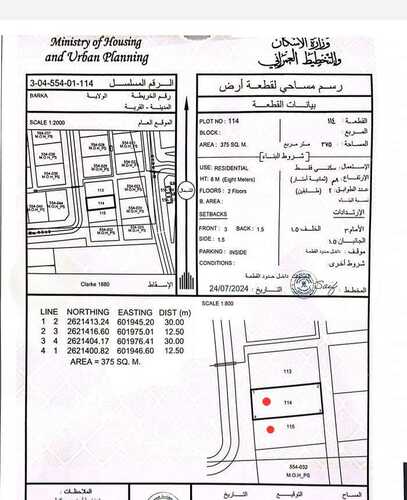 Ministry of Housing
and Urban Planning
وزارة الإسكان
والتخطيط العمراني
3-04-554-01-114 الرقم المسلسل
BARKA الولاية رقم الخريطة
المدينة - القرية
SCALE 1:2000 الموقع العام
113
114
115
Clarke 1880 الإسقاط
شمال
رسم مساحي لقطعة أرض
بيانات القطعة
PLOT NO : 114 ١١٤ القطعة:
BLOCK : المربع
AREA : 375 SQ. M. ٣٧٥ متر مربع المساحة:
شروط البناء
USE: RESIDENTIAL سكني فقط الإستعمال:
HT: 8 M (Eight Meters)
FLOORS : 2 Floors ٢ (طابقين) عدد الطوابق:
B. AREA: نسبة البناء:
SETBACKS الإرتدادات
FRONT : 3 BACK : 1.5 الخلف ١.٥ الأمام ٣
SIDE : 1.5 الجانبان ١.٥
PARKING :INSIDE داخل حدود القطعة موقف:
CONDITIONS : شروط أخرى
داخل حدود القطعة
24/07/2024 التاريخ: المخطط:
SCALE 1:800
LINE NORTHING EASTING DIST (m)
1 2 2621413.24 601945.20 30.00
2 3 2621416.60 601975.01 12.50
3 4 2621404.17 601976.41 30.00
4 1 2621400.82 601946.60 12.50
AREA = 375 SQ. M.
113
114
115
554-032
M.O.H_PS
الملاحظات:
التوقيع التاريخ المساح